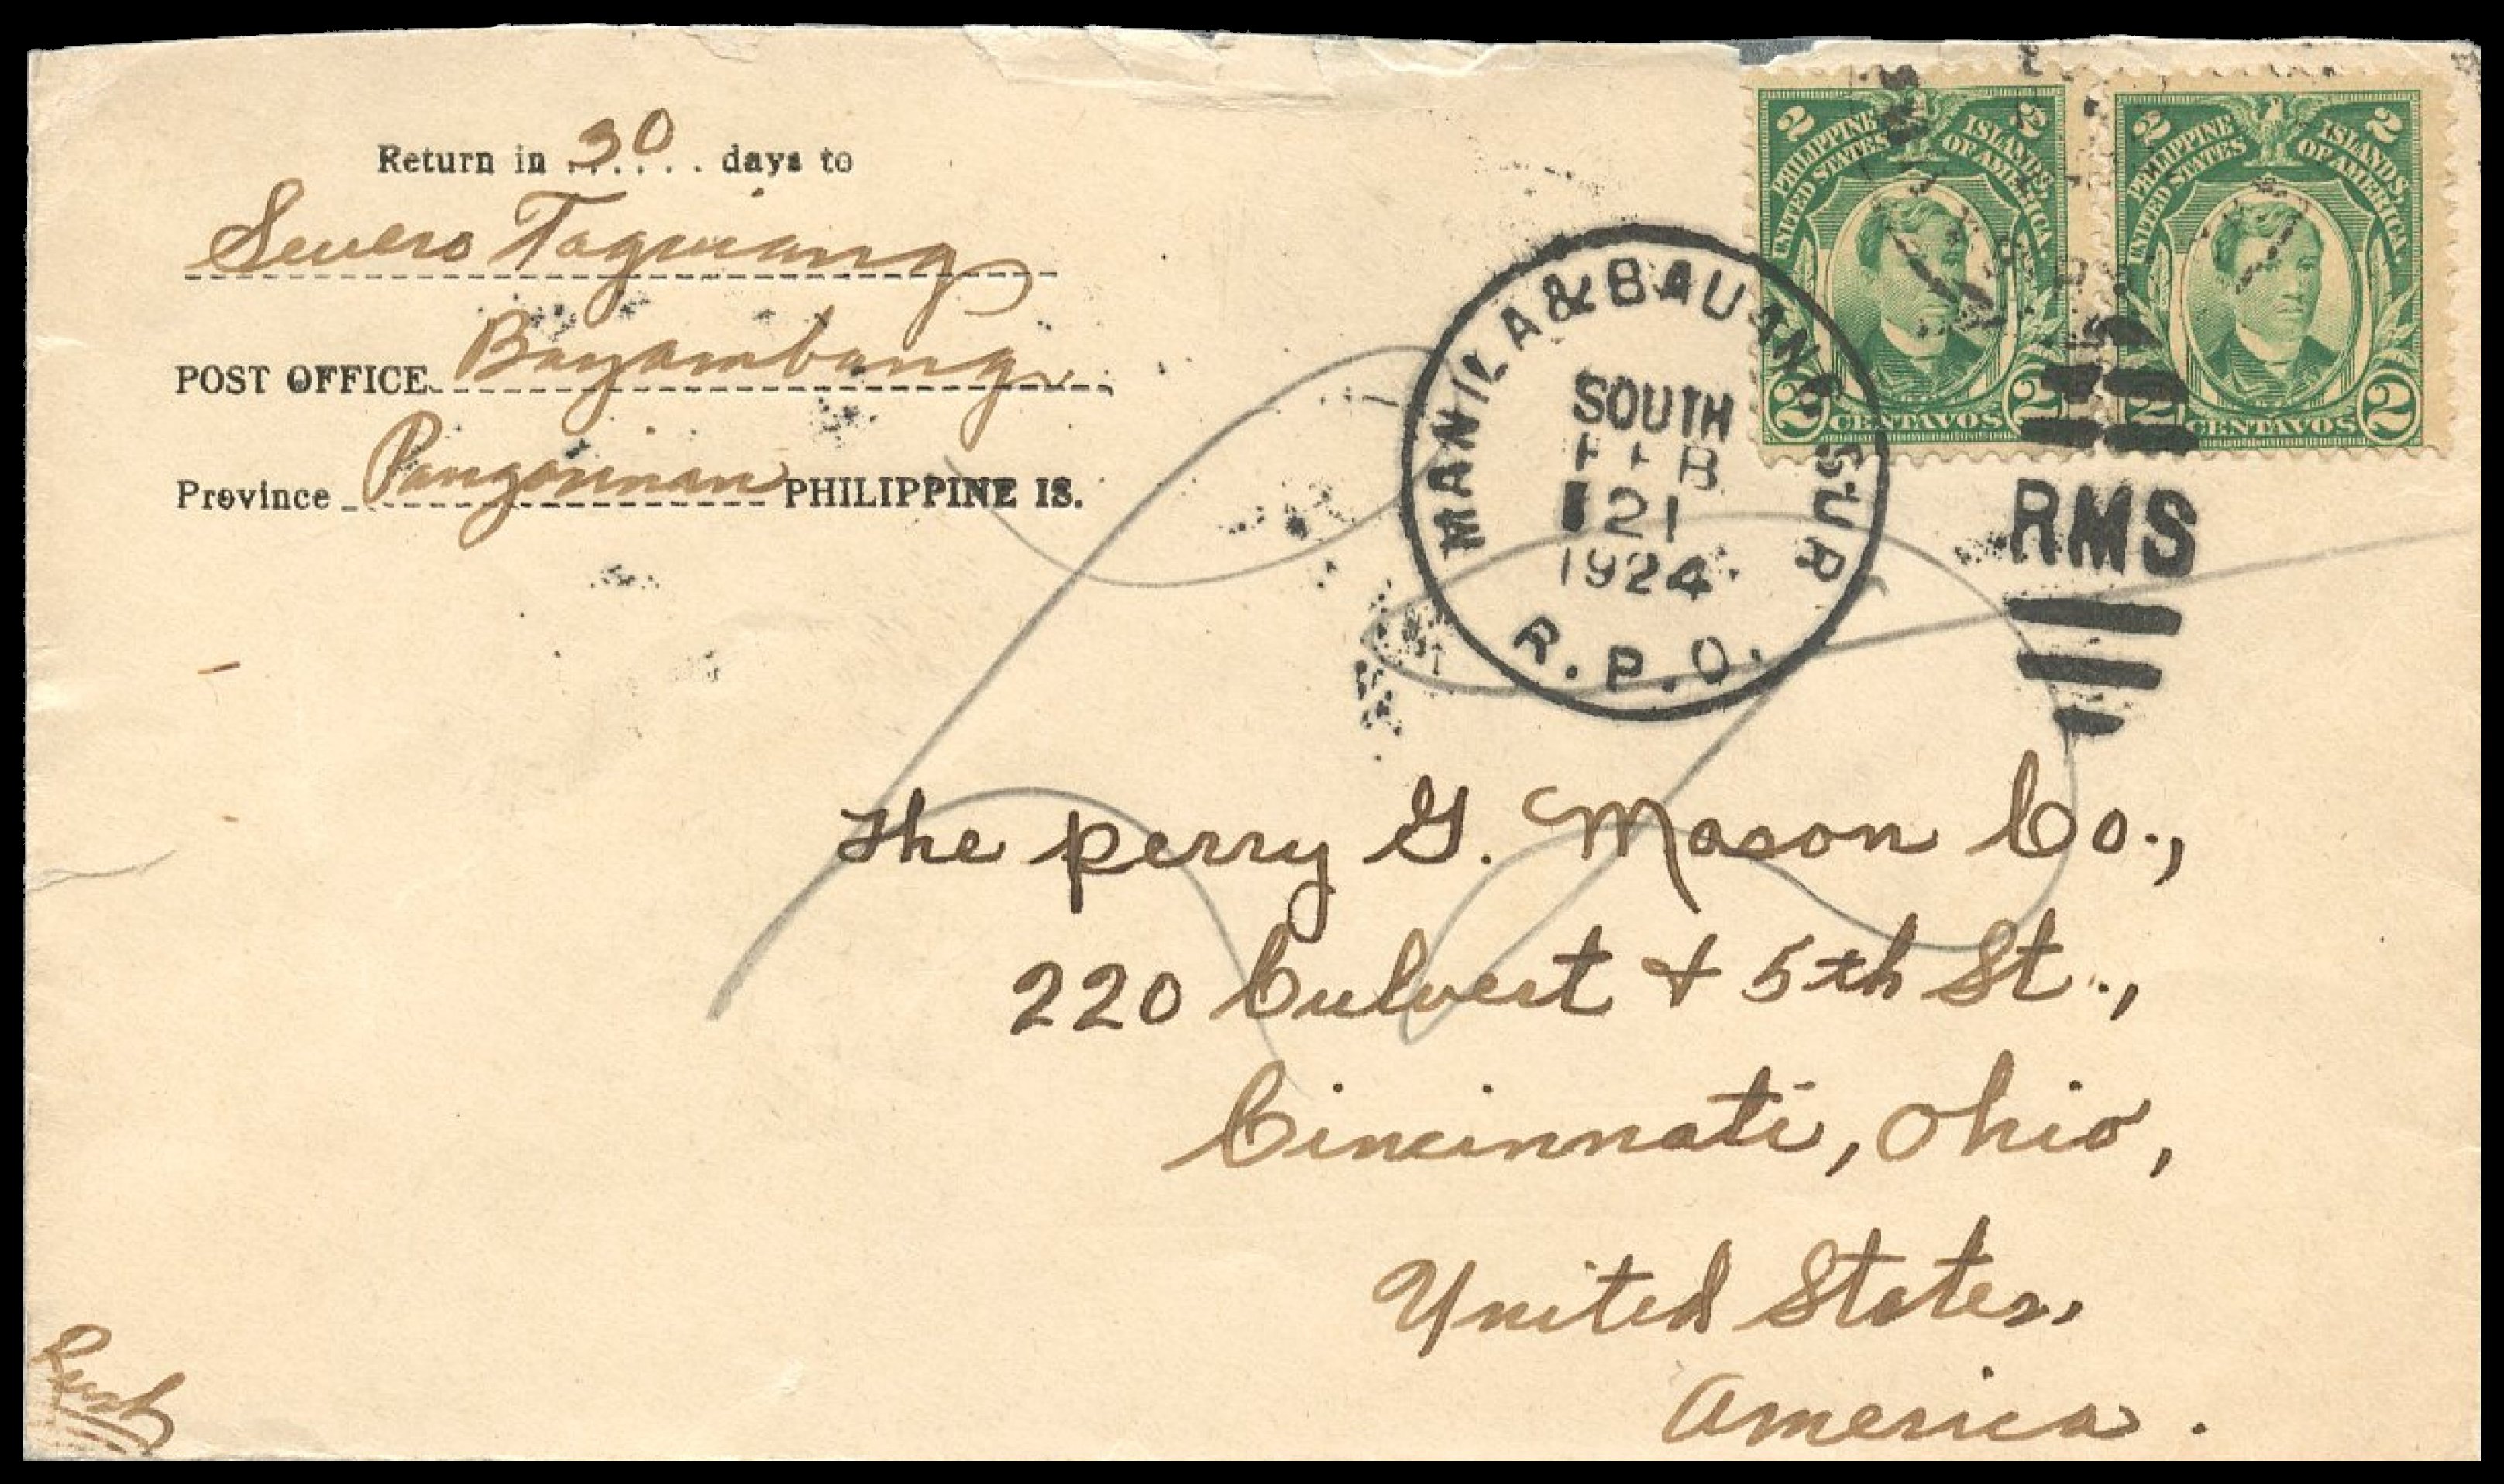 Return in 30 days to
Severo Taguiang
POST OFFICE Bayambang
Province Pangasinan PHILIPPINE IS.
2 PHILIPPINE ISLANDS 2
UNITED STATES OF AMERICA
2 CENTAVOS 2
2 PHILIPPINE ISLANDS 2
UNITED STATES OF AMERICA
2 CENTAVOS 2
MANILA & BAUANG SUR
SOUTH
FEB
21
1924
R.P.O.
RMS
The perry G. Mason Co.,
220 Culvert + 5th St.,
Cincinnati, Ohio,
United States,
America.
Rush